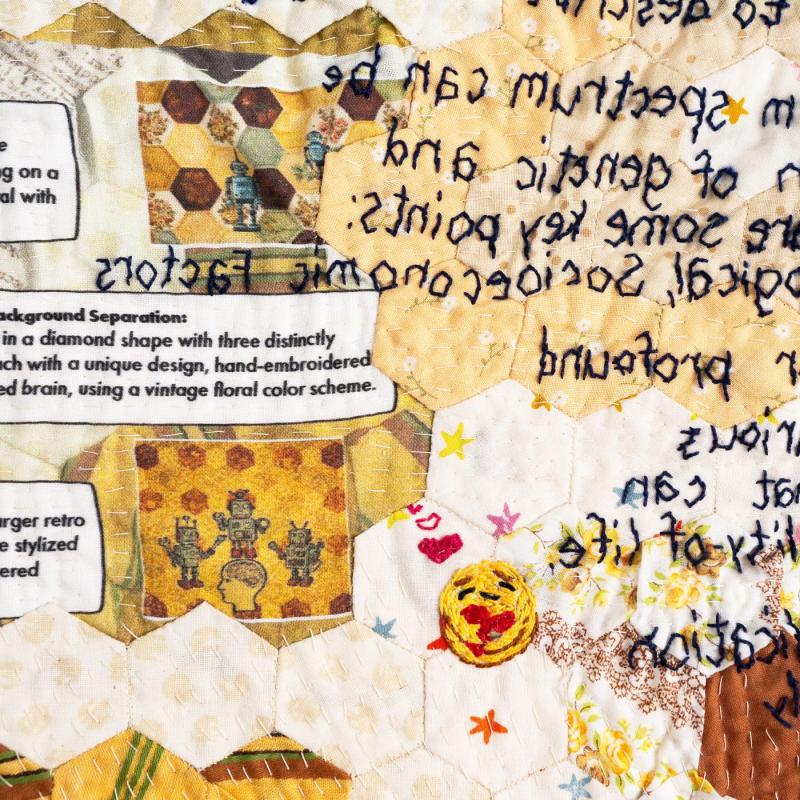 e
ng on a
al with
ackground Separation:
in a diamond shape with three distinctly
ch with a unique design, hand-embroidered
ed brain, using a vintage floral color scheme.
arger retro
e stylized
ered
spectrum can be
of genetic and
are some key points:
ogical, Socioeconomic Factors
profound
can
lity of life.